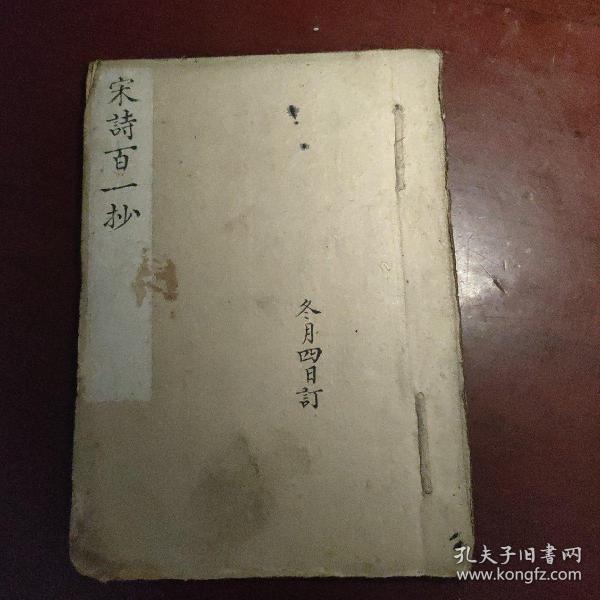 宋詩百一抄
冬月四日訂
孔夫子旧書网
www.kongfz.com